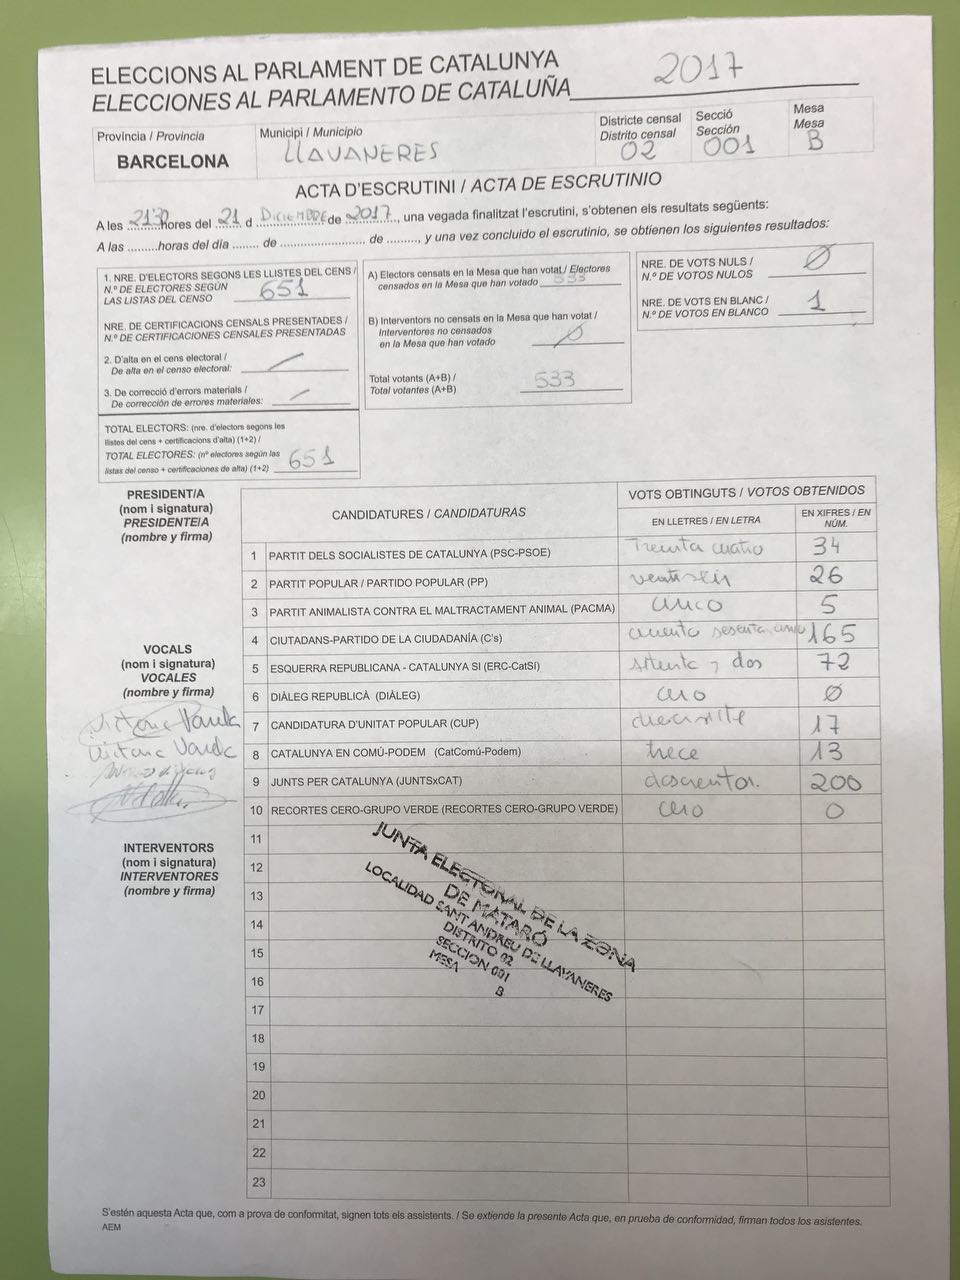 ELECCIONS AL PARLAMENT DE CATALUNYA
ELECCIONES AL PARLAMENTO DE CATALUÑA 2017
Provincia / Provincia
BARCELONA
Municipi / Municipio
LLAVANERES
Districte censal
Distrito censal
02
Secció
Sección
001
Mesa
Mesa
B
ACTA D'ESCRUTINI / ACTA DE ESCRUTINIO
A les 21'30 hores del 21 d DICIEMBRE de 2017, una vegada finalitzat l'escrutini, s'obtenen els resultats següents:
A las .........horas del día ........ de .......................... de .........., y una vez concluido el escrutinio, se obtienen los siguientes resultados:
1. NRE. D'ELECTORS SEGONS LES LLISTES DEL CENS /
N.º DE ELECTORES SEGÚN
LAS LISTAS DEL CENSO 651
NRE. DE CERTIFICACIONS CENSALS PRESENTADES /
N.º DE CERTIFICACIONES CENSALES PRESENTADAS
2. D'alta en el cens electoral /
De alta en el censo electoral:
3. De correcció d'errors materials /
De corrección de errores materiales:
TOTAL ELECTORS: (nre. d'electors segons les
llistes del cens + certificacions d'alta) (1+2) /
TOTAL ELECTORES: (nº electores según las
listas del censo + certificaciones de alta) (1+2) 651
A) Electors censats en la Mesa que han votat / Electores
censados en la Mesa que han votado 533
B) Interventors no censats en la Mesa que han votat /
Interventores no censados
en la Mesa que han votado Ø
Total votants (A+B) /
Total votantes (A+B) 533
NRE. DE VOTS NULS /
N.º DE VOTOS NULOS Ø
NRE. DE VOTS EN BLANC /
N.º DE VOTOS EN BLANCO 1
PRESIDENT/A
(nom i signatura)
PRESIDENTE/A
(nombre y firma)
VOCALS
(nom i signatura)
VOCALES
(nombre y firma)
INTERVENTORS
(nom i signatura)
INTERVENTORES
(nombre y firma)
CANDIDATURES / CANDIDATURAS
VOTS OBTINGUTS / VOTOS OBTENIDOS
EN LLETRES / EN LETRA
EN XIFRES / EN NÚM.
1 PARTIT DELS SOCIALISTES DE CATALUNYA (PSC-PSOE) Treinta cuatro 34
2 PARTIT POPULAR / PARTIDO POPULAR (PP) ventiseis 26
3 PARTIT ANIMALISTA CONTRA EL MALTRACTAMENT ANIMAL (PACMA) cinco 5
4 CIUTADANS-PARTIDO DE LA CIUDADANÍA (C's) ciento sesenta cinco 165
5 ESQUERRA REPUBLICANA - CATALUNYA SI (ERC-CatSí) setenta y dos 72
6 DIÀLEG REPUBLICÀ (DIÀLEG) cero Ø
7 CANDIDATURA D'UNITAT POPULAR (CUP) diecisiete 17
8 CATALUNYA EN COMÚ-PODEM (CatComú-Podem) trece 13
9 JUNTS PER CATALUNYA (JUNTSxCAT) doscientos. 200
10 RECORTES CERO-GRUPO VERDE (RECORTES CERO-GRUPO VERDE) cero 0
11
12
13
14
15
16
17
18
19
20
21
22
23
JUNTA ELECTORAL DE LA ZONA
DE MATARÓ
LOCALIDAD SANT ANDREU DE LLAVANERES
DISTRITO 02
SECCION 001
MESA B
S'estén aquesta Acta que, com a prova de conformitat, signen tots els assistents. / Se extiende la presente Acta que, en prueba de conformidad, firman todos los asistentes.
AEM